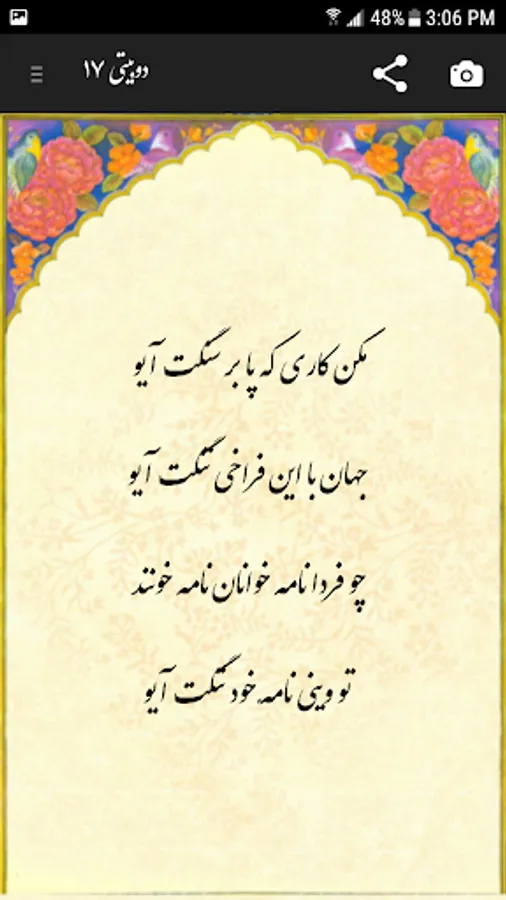 48% 3:06 PM
دوبیتی ۱۷
مکن کاری که پا بر سنگت آیو
جهان با این فراخی تنگت آیو
چو فردا نامه خوانان نامه خونند
تو وینی نامه خود تنگت آیو